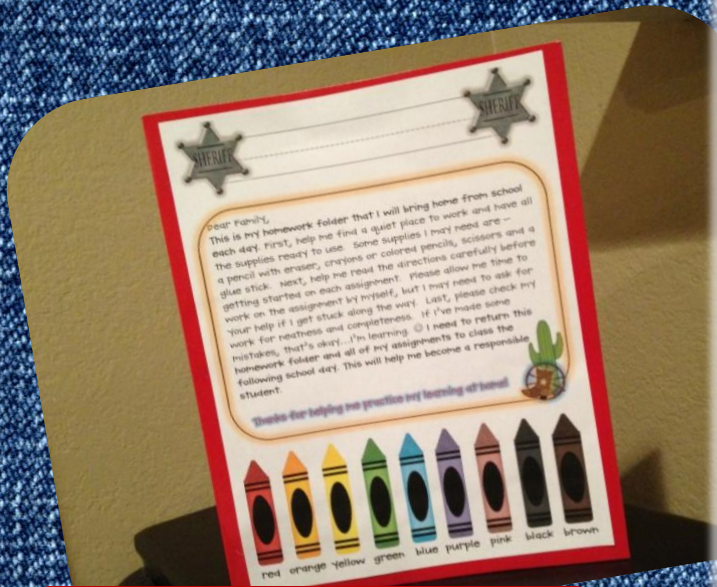 SHERIFF
SHERIFF
Dear Family,
This is my homework folder that I will bring home from school
each day. First, help me find a quiet place to work and have all
the supplies ready to use. Some supplies I may need are –
a pencil with eraser, crayons or colored pencils, scissors and a
glue stick. Next, help me read the directions carefully before
getting started on each assignment. Please allow me time to
work on the assignment by myself, but I may need to ask for
your help if I get stuck along the way. Last, please check my
work for neatness and completeness. If I've made some
mistakes, that's okay...I'm learning. ☺ I need to return this
homework folder and all of my assignments to class the
following school day. This will help me become a responsible
student.
Thanks for helping me practice my learning at home!
red orange yellow green blue purple pink black brown